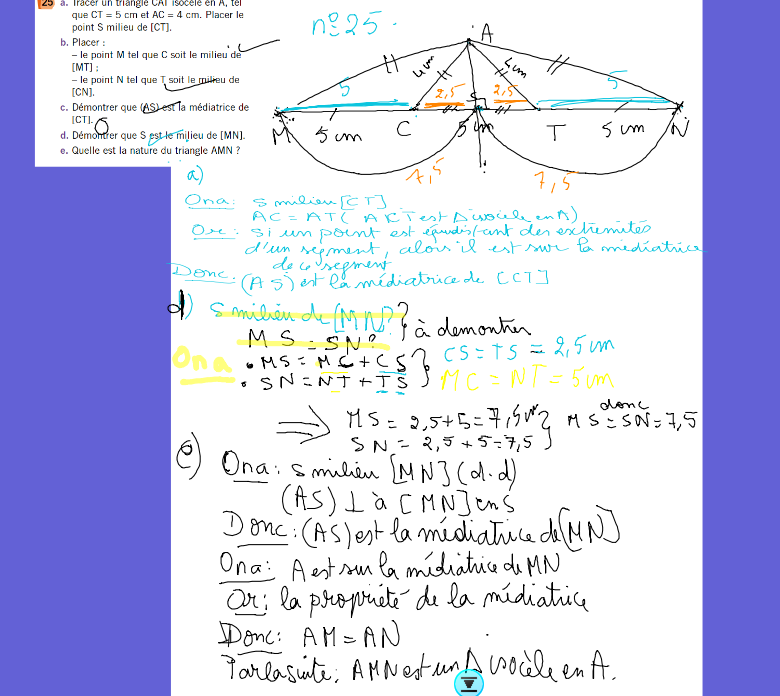 25 a. Tracer un triangle CAT isocèle en A, tel
que CT = 5 cm et AC = 4 cm. Placer le
point S milieu de [CT].
b. Placer :
– le point M tel que C soit le milieu de
[MT] ;
– le point N tel que T soit le milieu de
[CN].
c. Démontrer que (AS) est la médiatrice de
[CT].
d. Démontrer que S est le milieu de [MN].
e. Quelle est la nature du triangle AMN ?
n°25.
A
4cm 5cm
5 2,5 2,5 5
S
M 5 cm C 5 cm T 5 cm N
7,5 7,5
a)
Ona: S milieu [CT]
AC = AT ( ACT est Δ isocèle en A)
Ore: si un point est équidistant des extrémités
d'un segment, alors il est sur la médiatrice
de ce segment
Donc: (AS) est la médiatrice de [CT]
d) S milieu de [MN]?
MS = SN? } à demontrer
Ona • MS = MC + CS } CS = TS = 2,5 cm
• SN = NT + TS } MC = NT = 5 cm
⇒ MS = 2,5+5=7,5 cm } donc MS = SN = 7,5
SN = 2,5+5=7,5
e) Ona: S milieu [MN] (d.d)
(AS) ⊥ à [MN] en S
Donc: (AS) est la médiatrice de [MN]
Ona: A est sur la médiatrice de MN
Or: la propriété de la médiatrice
Donc: AM = AN
Par la suite; AMN est un Δ isocèle en A.